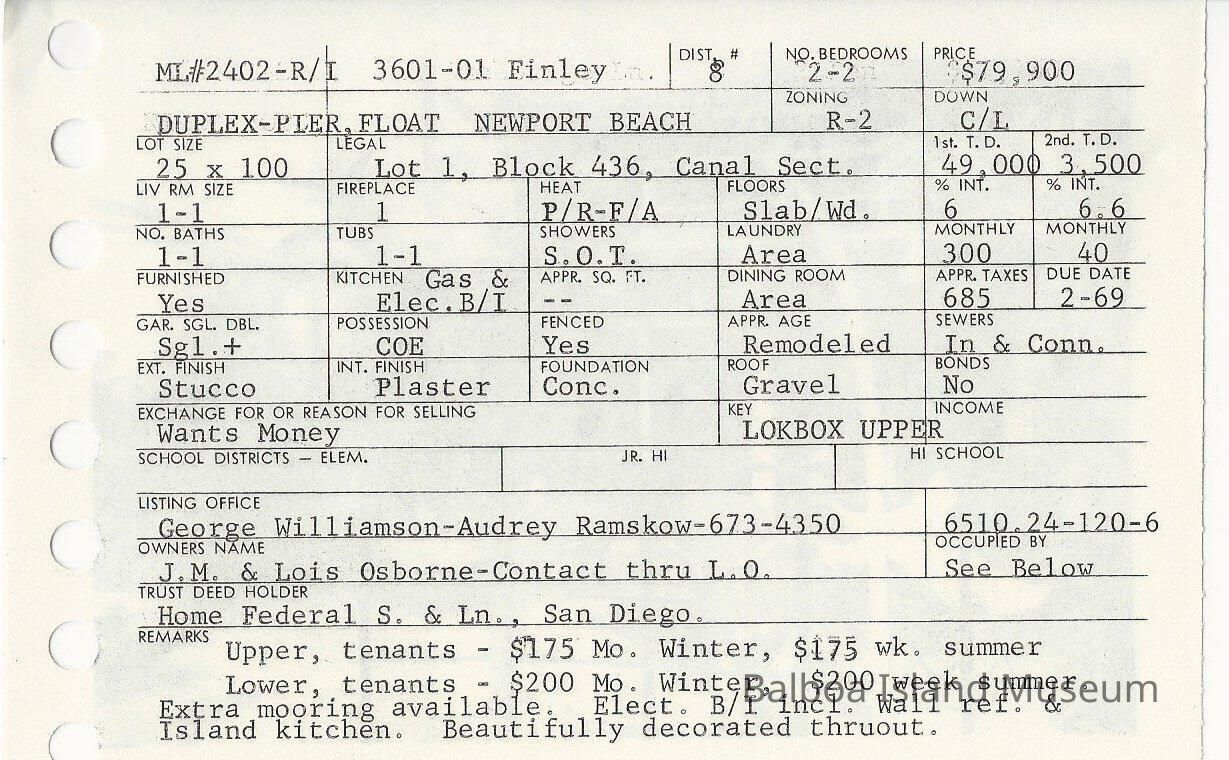 ML#2402-R/I 3601-01 Finley DIST. # 8 NO. BEDROOMS 2-2 PRICE $79,900
DUPLEX-PIER, FLOAT NEWPORT BEACH ZONING R-2 DOWN C/L
LOT SIZE 25 x 100 LEGAL Lot 1, Block 436, Canal Sect. 1st. T. D. 49,000 2nd. T. D. 3,500
LIV RM SIZE 1-1 FIREPLACE 1 HEAT P/R-F/A FLOORS Slab/Wd. % INT. 6 % INT. 6.6
NO. BATHS 1-1 TUBS 1-1 SHOWERS S.O.T. LAUNDRY Area MONTHLY 300 MONTHLY 40
FURNISHED Yes KITCHEN Gas & Elec.B/I APPR. SQ. FT. -- DINING ROOM Area APPR. TAXES 685 DUE DATE 2-69
GAR. SGL. DBL. Sgl.+ POSSESSION COE FENCED Yes APPR. AGE Remodeled SEWERS In & Conn.
EXT. FINISH Stucco INT. FINISH Plaster FOUNDATION Conc. ROOF Gravel BONDS No
EXCHANGE FOR OR REASON FOR SELLING Wants Money KEY LOKBOX UPPER INCOME
SCHOOL DISTRICTS — ELEM. JR. HI HI SCHOOL
LISTING OFFICE George Williamson-Audrey Ramskow-673-4350 6510.24-120-6
OWNERS NAME J.M. & Lois Osborne-Contact thru L.O. OCCUPIED BY See Below
TRUST DEED HOLDER Home Federal S. & Ln., San Diego.
REMARKS Upper, tenants - $175 Mo. Winter, $175 wk. summer
Lower, tenants - $200 Mo. Winter, $200 week summer
Balboa Island Museum
Extra mooring available. Elect. B/I incl. Wall ref. &
Island kitchen. Beautifully decorated thruout.